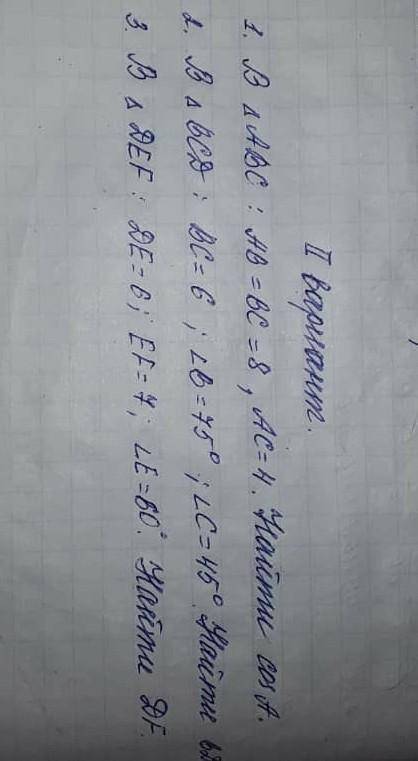 II вариант.
1. В △ ABC : AB = BC = 8 , AC = 4. Найти cos A.
2. В △ BCD ; BC = 6 ; ∠B = 75° ; ∠C = 45°. Найти BD
3. В △ DEF ; DE = 6 ; EF = 7 ; ∠E = 60°. Найти DF.